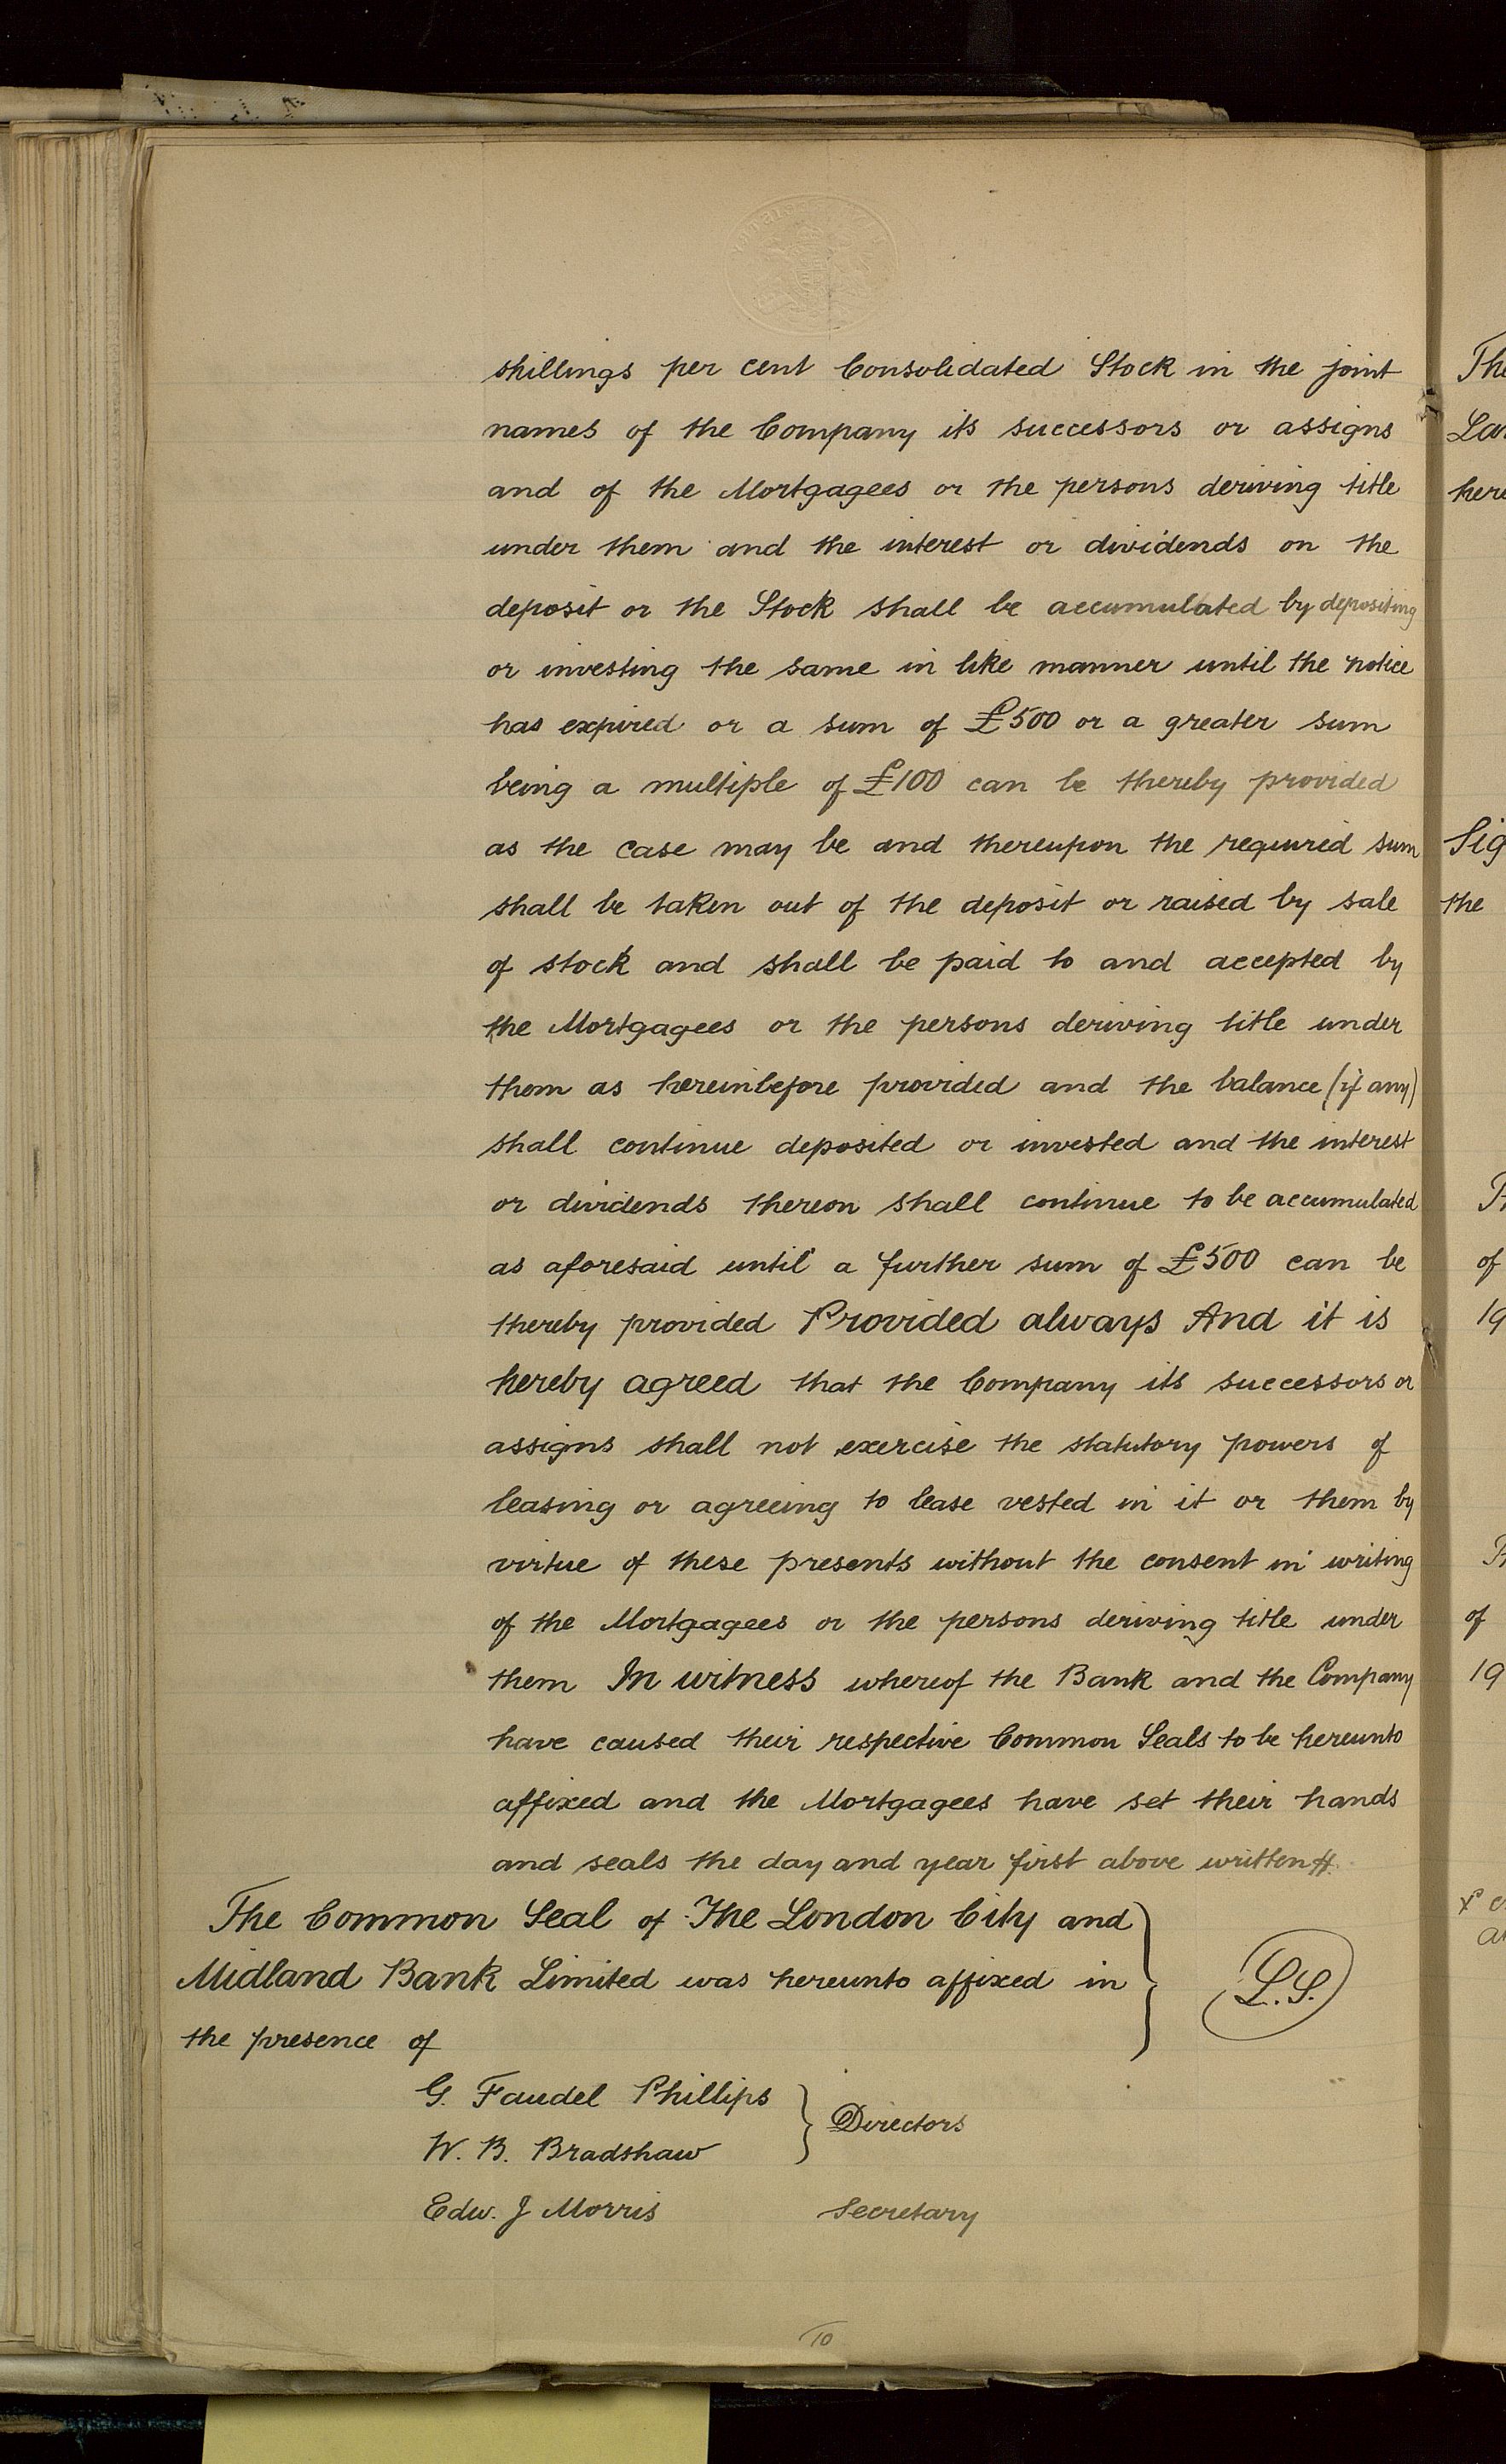 shillings per cent Consolidated Stock in the joint
names of the Company its successors or assigns
and of the Mortgagees or the persons deriving title
under them and the interest or dividends on the
deposit or the Stock shall be accumulated by depositing
or investing the same in like manner until the notice
has expired or a sum of £500 or a greater sum
being a multiple of £100 can be thereby provided
as the case may be and thereupon the required sum
shall be taken out of the deposit or raised by sale
of stock and shall be paid to and accepted by
the Mortgagees or the persons deriving title under
them as hereinbefore provided and the balance (if any)
shall continue deposited or invested and the interest
or dividends thereon shall continue to be accumulated
as aforesaid until a further sum of £500 can be
thereby provided Provided always And it is
hereby agreed that the Company its successors or
assigns shall not exercise the statutory powers of
leasing or agreeing to lease vested in it or them by
virtue of these presents without the consent in writing
of the Mortgagees or the persons deriving title under
them In witness whereof the Bank and the Company
have caused their respective Common Seals to be hereunto
affixed and the Mortgagees have set their hands
and seals the day and year first above written
The Common Seal of The London City and
Midland Bank Limited was hereunto affixed in
the presence of
L.S.
G. Faudel Phillips
W. B. Bradshaw
Directors
Edw. J Morris Secretary
10
the
of
19
of
19